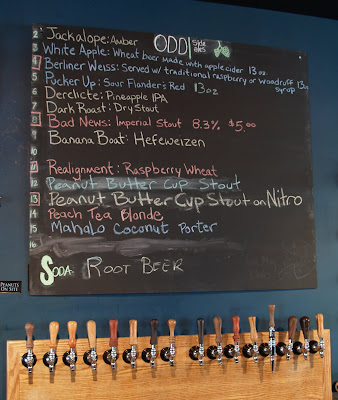 ODD Side Ales
2 Jackalope: Amber
3 White Apple: Wheat beer made with apple cider 13 oz.
4 Berliner Weiss: Served w/ traditional raspberry or woodruff syrup 13oz
5 Pucker Up: Sour Flander's Red 13 oz
6 Derelicte: Pineapple IPA
7 Dark Roast: Dry Stout
8 Bad News: Imperial Stout 8.3% $5.00
9 Banana Boat: Hefeweizen
10
11 Realignment: Raspberry Wheat
12 Peanut Butter Cup Stout
13 Peanut Butter Cup Stout on Nitro
14 Peach Tea Blonde
15 Mahalo Coconut Porter
16
Soda Root Beer
PEANUTS
ON SITE